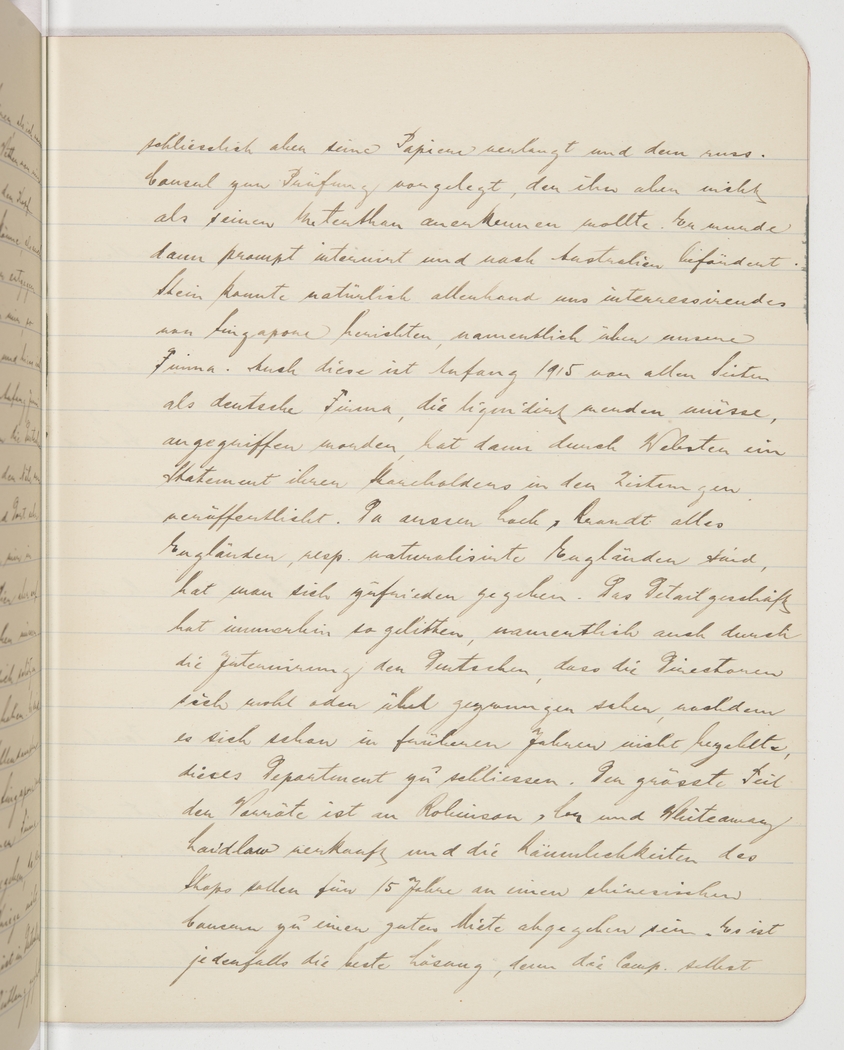 schliesslich aber seine Papiere verlangt und dem russ.
Consul zur Prüfung vorgelegt, der ihn aber nicht
als seinen Unterthan anerkennen wollte. Er wurde
dann prompt internirt und nach Australien befördert.
Stein konnte natürlich allerhand uns interressirendes
von Singapore berichten, namentlich über unsere
Firma. Auch diese ist Anfang 1915 von allen Seiten
als deutsche Firma, die liquidirt werden müsse,
angegriffen worden, hat dann durch Webster ein
Statement ihrer Shareholders in den Zeitungen
veröffentlicht. Da aussen Hock, Brandt alles
Engländer, resp. naturalisirte Engländer sind,
hat man sich zufrieden gegeben. Das Detailgeschäft
hat immerhin so gelitten, namentlich auch durch
die Internirung der Deutschen, dass die Directoren
sich wohl oder übel gezwungen sahen, nachdem
es sich schon in früheren Jahren nicht bezahlte,
dieses Department zu schliessen. Der grösste Teil
der Vorräte ist an Robinson & Co und Whiteaway
Laidlaw verkauft und die Räumlichkeiten des
Shops sollen für 15 Jahre an einen chinesischen
Concern zu einer guten Miete abgegeben sein. Es ist
jedenfalls die beste Lösung, denn die Comp. selbst